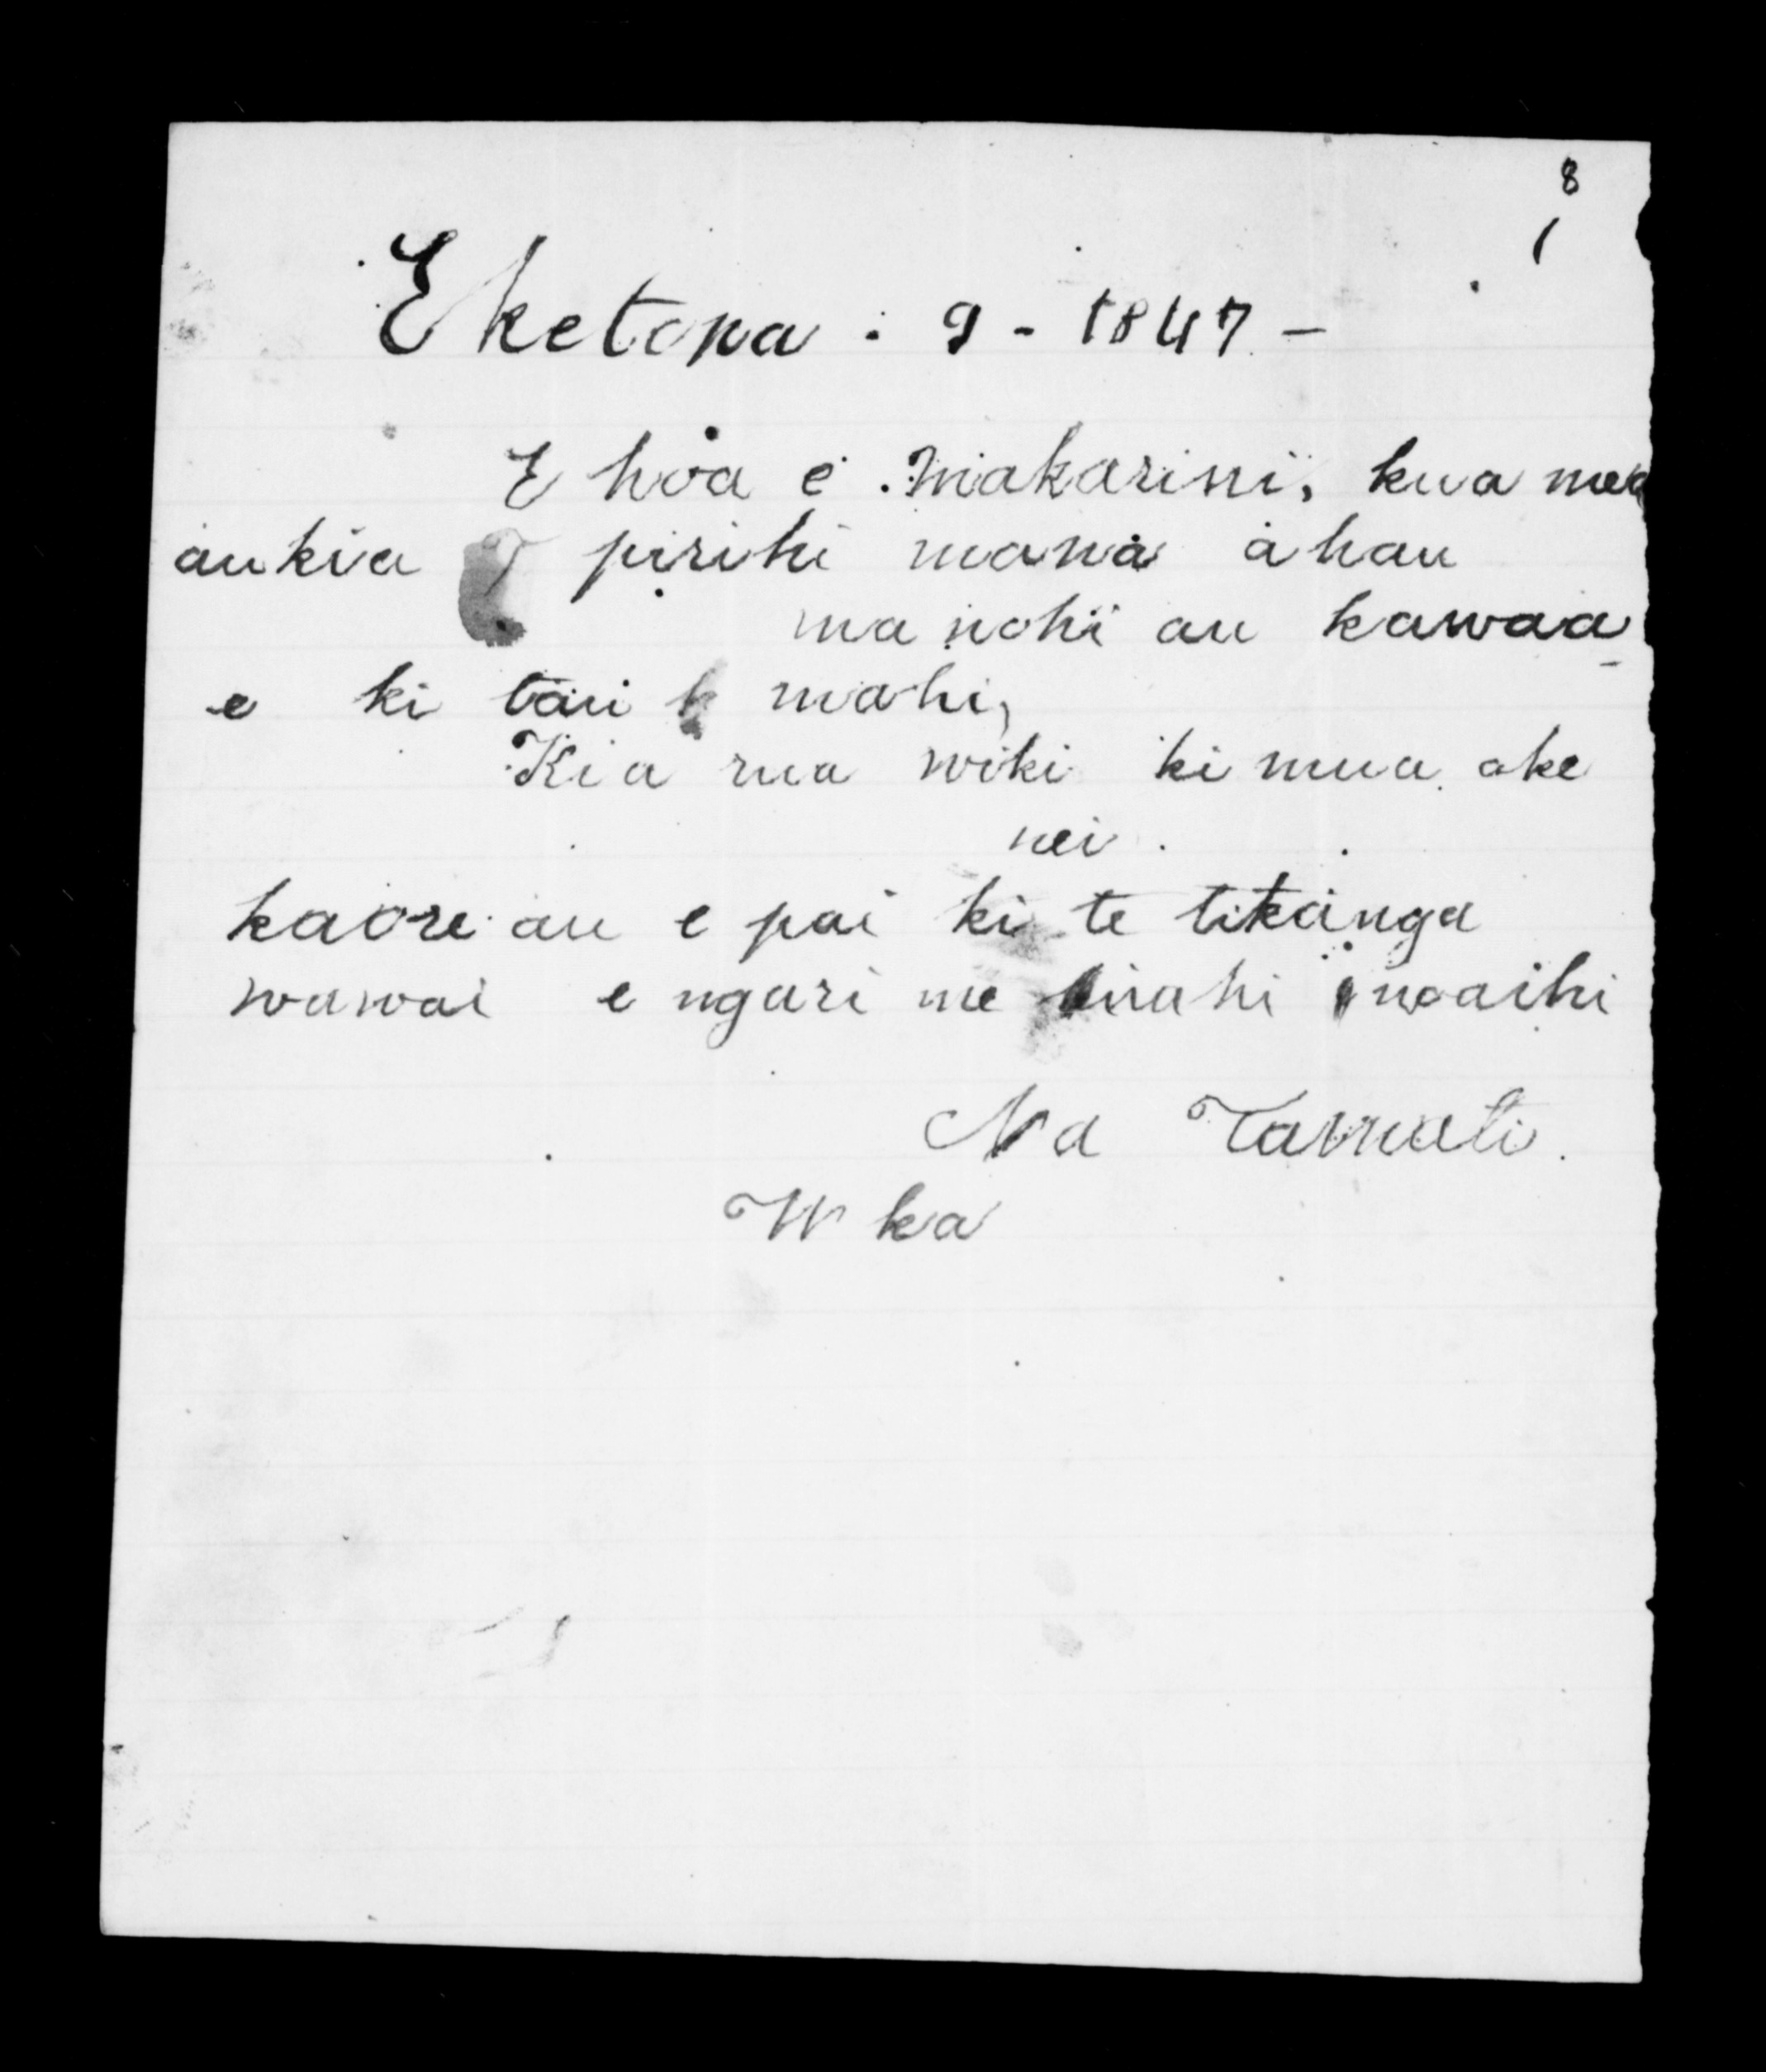 8
1
Eketopa : 9 - 1847 -
E hoa e Makarini, kua mea
au kia pirihimana ahau
ma nohi au kawaa
e ki taui mahi,
Kia rua wiki ki mua ake
nei.
kaore au e pai ki te tikanga
wawai e ngari me mahi
Na Tamati
W ka